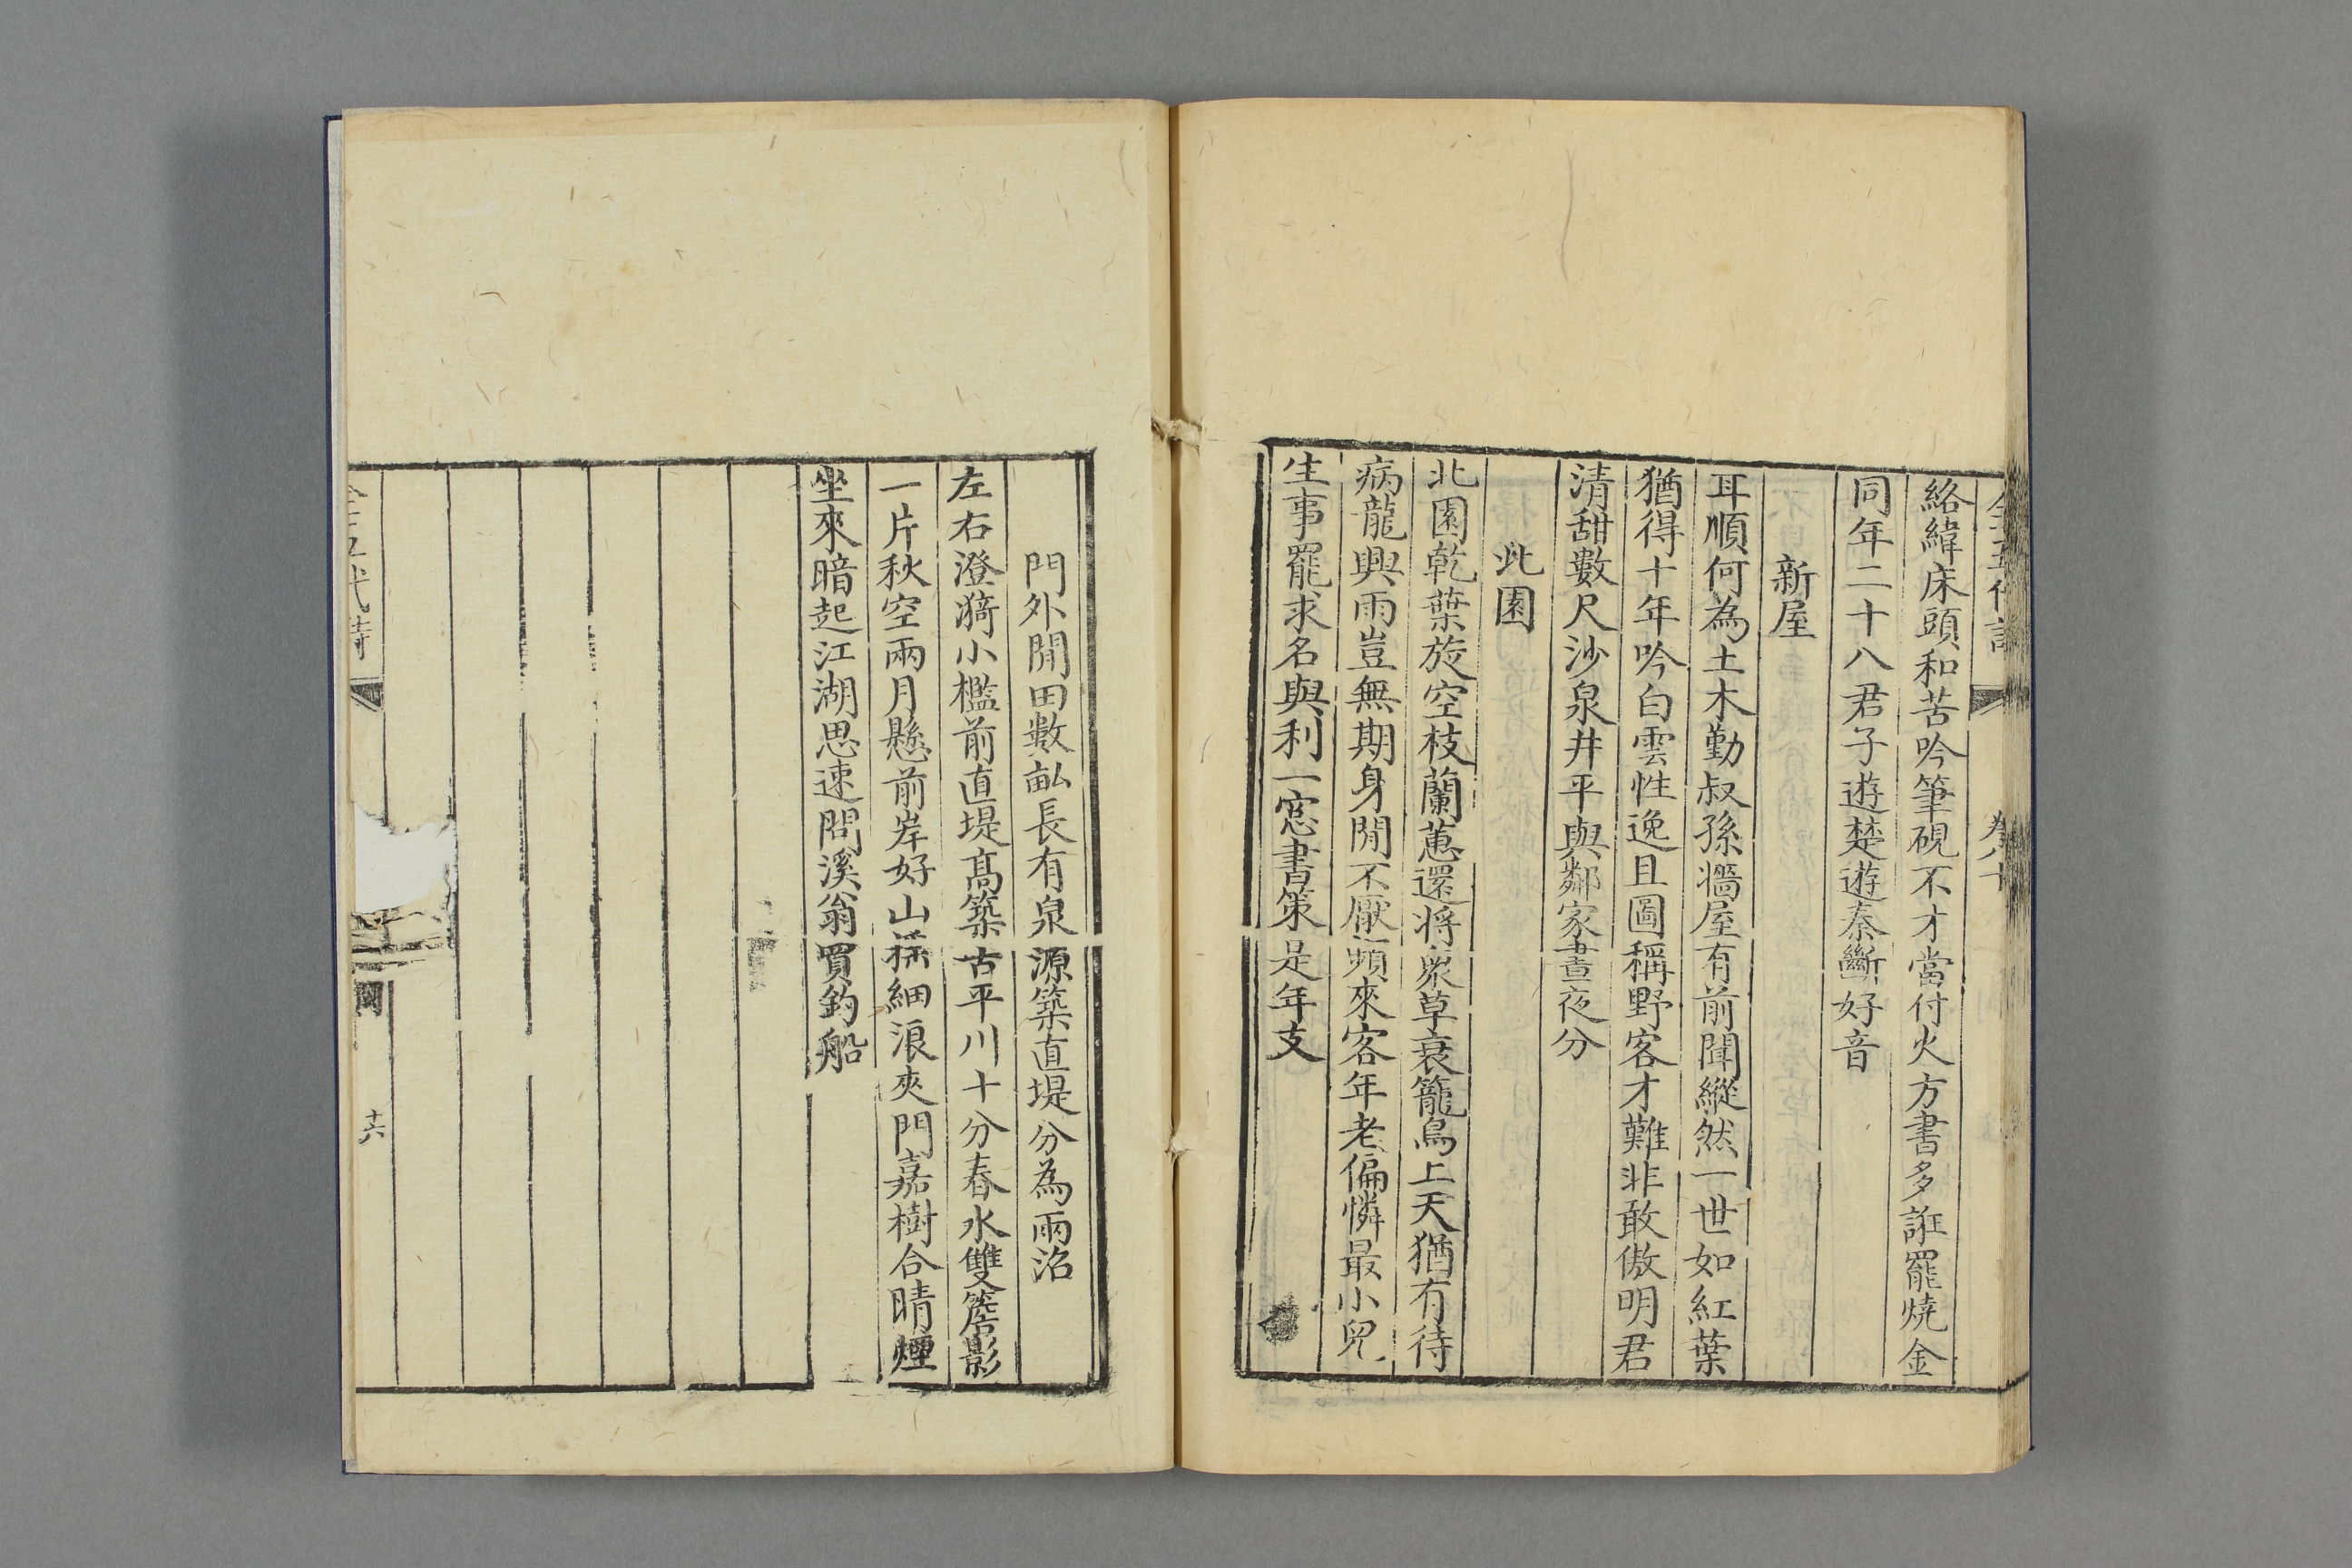 全五代詩 卷八十
絡緯床頭和苦吟筆硯不才當付火方書多誑罷燒金
同年二十八君子遊楚遊秦斷好音
新屋
耳順何為土木勤叔孫牆屋有前聞縱然一世如紅葉
猶得十年吟白雲性逸且圖稱野客才難非敢傲明君
清甜數尺沙泉井平與鄰家晝夜分
北園
北園乾葉旋空枝蘭蕙還將衆草衰籠鳥上天猶有待
病龍興雨豈無期身閒不厭頻來客年老偏憐最小兒
生事罷求名與利一窓書策是年支
門外閒田數畝長有泉源築直堤分為兩沼
左右澄漪小檻前直堤高築古平川十分春水雙簷影
一片秋空兩月懸前岸好山搖細浪夾門嘉樹合晴煙
坐來暗起江湖思速問溪翁買釣船
全五代詩
十六